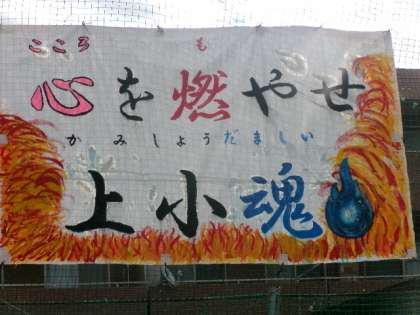 こころ も
心を燃やせ
かみしょうだましい
上小魂